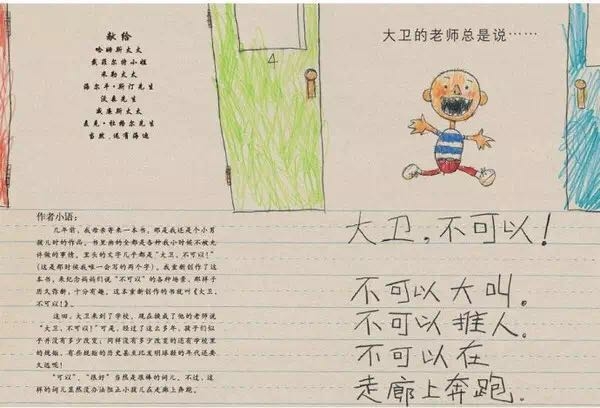 献给
哈姆斯太太
戴菲尔特小姐
米勒太太
海尔平·斯汀先生
沃米先生
威廉斯太太
麦克·杜格尔先生
当然，还有海迪
4
大卫的老师总是说……
作者小语：
几年前，我母亲寄来一本书，那是我还是个小男
孩儿时的作品。书里画的全都是各种我小时候不被允
许做的事情，里头的文字几乎都是“大卫，不可以！”
（这是那时候我唯一会写的两个字）。我重新创作了这
本书，来纪念妈妈们说“不可以”的各种场景，那样子
历久弥新，十分有趣。这本重新创作的书就叫《大卫，
不可以！》。
这回，大卫来到了学校，现在换成了他的老师说
“大卫，不可以！”可是，经过了这么多年，孩子们似
乎并没有多少改变；同样没有多少改变的还有学校里
的规矩。有些规矩的历史甚至比发明球鞋的年代还要
久远呢！
“可以”、“很好”当然是很棒的词儿。不过，这
样的词儿显然没办法阻止小孩儿在走廊上奔跑。
大卫，不可以！
不可以大叫。
不可以推人。
不可以在
走廊上奔跑。